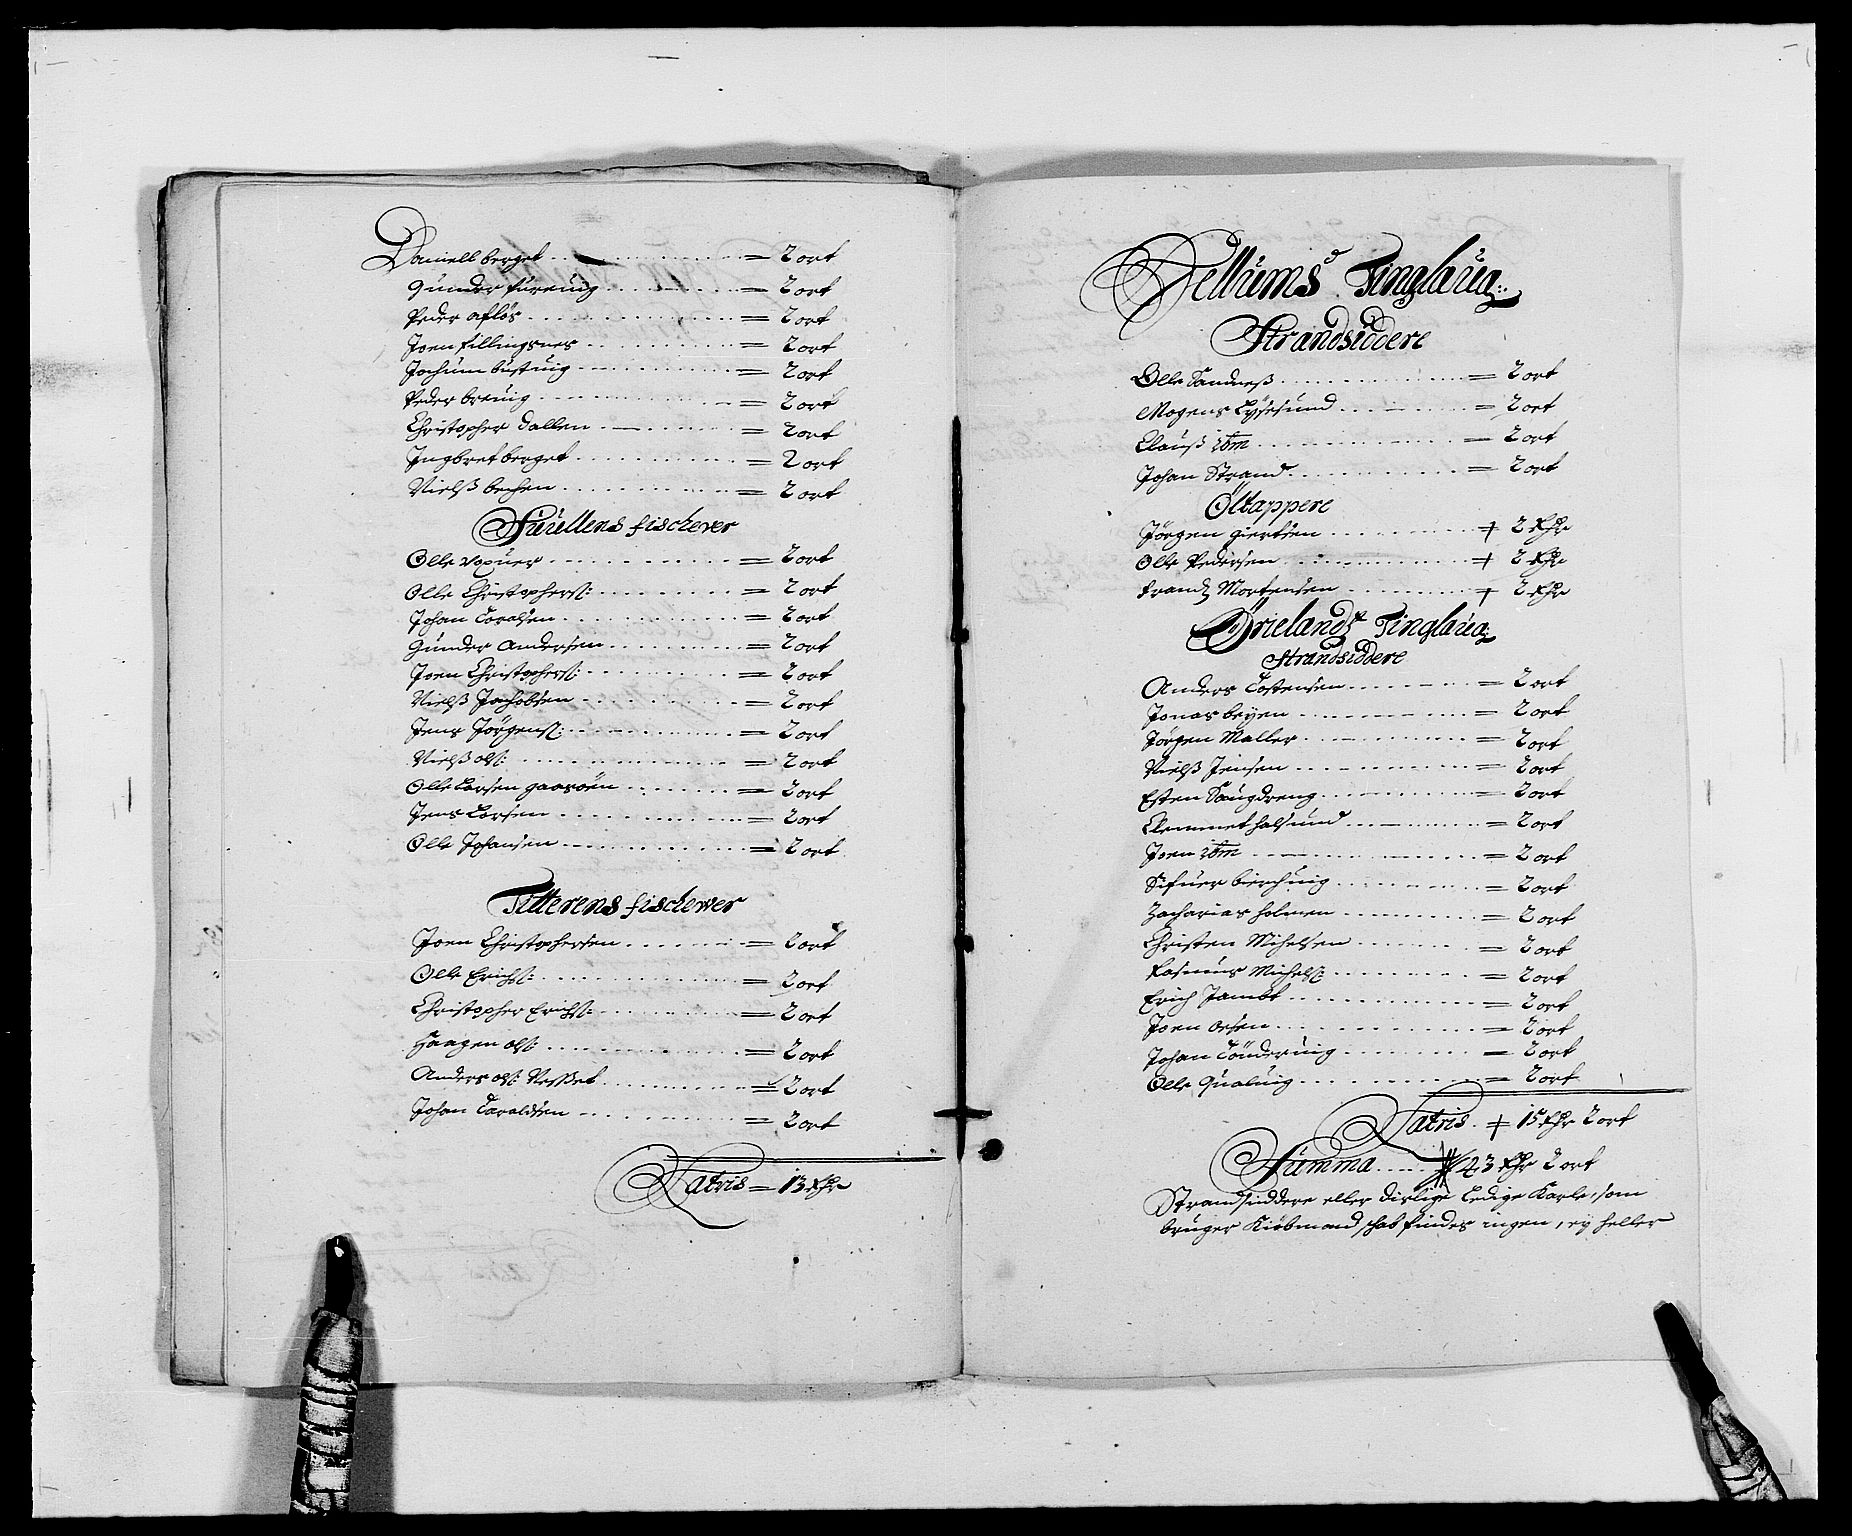 Daniell berget = 2 ort
Gunder furuig = 2 ort
Peder afløs = 2 ort
Joen fillingsnes = 2 ort
Jochum bustuig = 2 ort
Peder breuig = 2 ort
Christopher dallen = 2 ort
Ingbret berget = 2 ort
Nielß bechen = 2 ort
Suullens fischever
Olle = 2 ort
Olle Christophers: = 2 ort
Johan Toralsen = 2 ort
Gunder Andersen = 2 ort
Joen Christophers: = 2 ort
Nielß Jachobsen = 2 ort
Jens Jörgens: = 2 ort
Nielß ols: = 2 ort
Olle Larsen gaasøen = 2 ort
Jens Larsen = 2 ort
Olle Johansen = 2 ort
Titterens fischewer
Joen Christophersen = 2 ort
Olle Erichs: = 2 ort
Christopher Erichs: = 2 ort
Haagen ols: = 2 ort
Anders ols: Neßet = 2 ort
Johan Taraldsen = 2 ort
Latris = 13 Rhr
Tinglaug:
Strandsiddere
Olle Sandneß = 2 ort
Mogens Lysesund = 2 ort
Clauß ibm = 2 ort
Johan Strand = 2 ort
Öltappere
Jörgen Giertsen + 2 Rhr
Olle Pedersen + 2 Rhr
Frandz Mortensen + 2 Rhr
Ørielandz Tinglaug
Strandsiddere
Anders Tostensen = 2 ort
Jonas beyen = 2 ort
Jörgen Maller = 2 ort
Nielß Jensen = 2 ort
Esten Saugdreng = 2 ort
Clemmet halsund = 2 ort
Joen ibm = 2 ort
Sifuer bierchuig = 2 ort
Zacharias holmen = 2 ort
Christen Michelsen = 2 ort
Rasmus Michels: = 2 ort
Erich Jambt = 2 ort
Joen oesen = 2 ort
Johan Tönderuig = 2 ort
Olle Qualuig = 2 ort
Latris + 15 Rhr 2 ort
Summa 43 Rhr 2 ort
Strandsiddere eller dislige Ledige Karle, som
bruger Kiøbmandschab findes ingen, ey heller